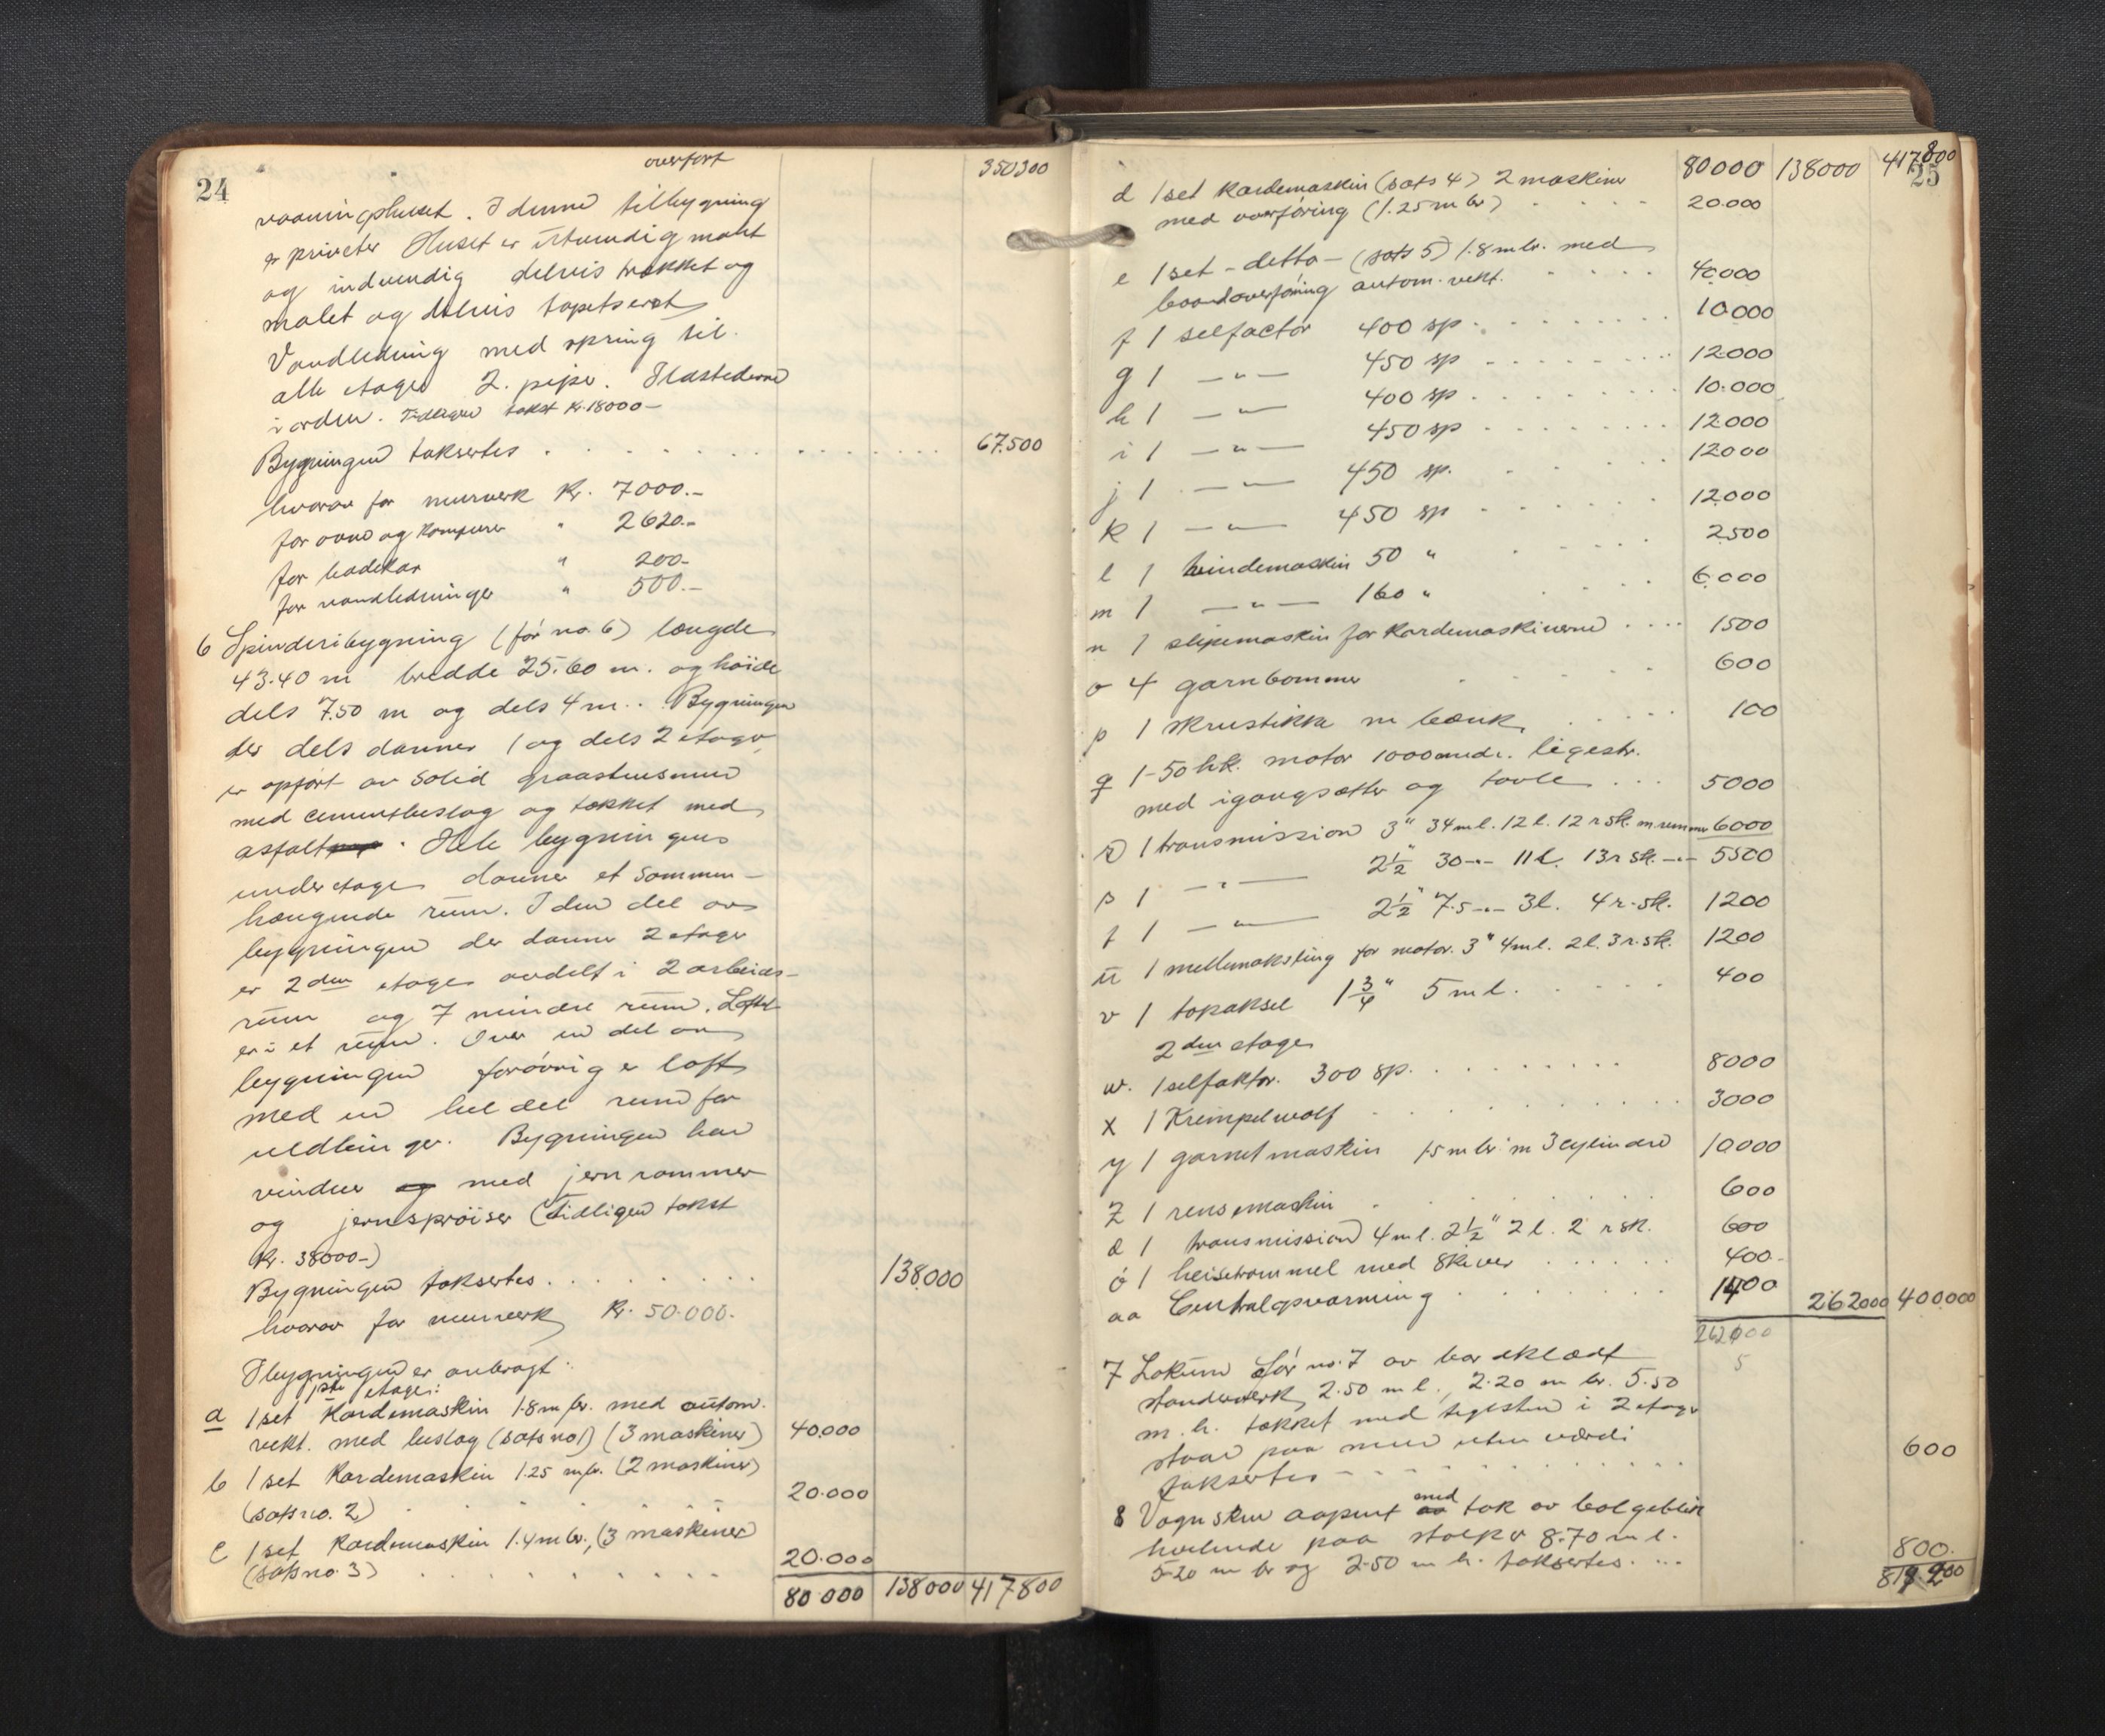 24
overført 350300
vaaningshuset. I denne tilbygning
er priveter Huset er utvendig malt
og indvendig delvis trækket og
malet og delvis tapetseret
Vandledning med spring til
alle etager 2. piper. Ildstederne
i orden. Tidligere takst kr. 18000-
Bygningen taksertes . . . . . . . . . . . . 67.500
hvorav for murverk Kr. 7000.-
for ovne og komfurer " 2620.-
for badekar " 200-
for vandledninger " 500.-
6 Spinderibygning (før no. 6) længde
43.40 m bredde 25.60 m. og høide
dels 7.50 m og dels 4 m. Bygningen
der dels danner 1 og dels 2 etager
er opført av solid graastensmur
med cementbeslag og tækket med
asfalt. Hele bygningens
underetage danner et sammen-
hængende rum. I den del av
bygningen der danner 2 etager
er 2den etage avdelt i 2 arbeids-
rum og 7 mindre rum. Loftet
er i et rum. Over en del av
bygningen forøvrig er loft
med en hel del rum for
uldbinger. Bygningen har
vinduer og med jernrammer
og jernsprøiser (Tidligere takst
Kr. 38000-)
Bygningen taksertes . . . . . . . . . 138.000
hvorav for murverk Kr. 50.000.
I bygningen er anbragt:
1ste etage:
a 1 set Kardemaskin 1.8 m br. med autom.
vekt. med beslag (sats no 1) (3 maskiner) 40.000
b 1 set Kardemaskin 1.25 m br. (2 maskiner)
(sats no. 2) . . . . . . 20.000
c 1 set Kardemaskin 1.4 m br., (3 maskiner)
(sats no. 3) . . . . . . . . . 20.000
80.000 138000 417800
25
80000 138000 417800
d 1 set kardemaskin (sats 4) 2 maskiner
med overføring (1.25 m br) . . . . 20.000
e 1 set - ditto - (sats 5) 1.8 m br. med
baandoverføring autom. vekt. . . . . 40000
f 1 selfactor 400 sp. . . . . . . . 10.000
g 1 —"— 450 sp . . . . . . . . 12.000
h 1 —"— 400 sp . . . . . . . . 10.000
i 1 —"— 450 sp . . . . . . . . 12.000
j 1 —"— 450 sp. . . . . 12000
k 1 —"— 450 sp . . . . . . 12.000
l 1 tvindemaskin 50 " . . . . 2500
m 1 —"— 160 " . . . 6.000
n 1 slipemaskin for kardemaskinerne . . . . 1500
o 4 garnbommer . . . . . 600
p 1 skrustikke m bænk . . . . . 100
q 1-50 hk. motor 1000 omdr. ligestr.
med igangsætter og tavle . . . 5000
r 1 transmission 3" 34 m l. 12 l. 12 r sk. m. remmer 6000
s 1 —"— 2½" 30 -"- 11 l. 13 r sk. -"- 5500
t 1 —"— 2½" 7.5 -"- 3 l. 4 r. sk. 1200
u 1 mellemaksling for motor. 3" 4 m l. 2 l. 3 r. sk. 1200
v 1 topaksel 1¾" 5 m l. . . . . . 400
2den etage
w. 1 selfaktor. 300 sp. . . . . . . . . 8000
x 1 Krempelwolf . . . . . . . . . 3000
y 1 garnetmaskin 1.5 m br m 3 cylindre 10.000
z 1 rensemaskin . . . . . . . 600
æ 1 transmission 4 m l. 2½" 2 l. 2 r sk. 600
ø 1 heisetrommel med skiver . . . . . . 400-
aa Centralopvarming . . . . . . . 1400 262000 400.000
262000
5
7 Lokum før no. 7 av bordklædt
standerverk, 2.50 m l., 2.20 m br. 5.50
m. h. tækket med teglsten i 2 etager
staar paa mur uten værdi
taksertes . . . . . . . . . . . 600
8 Vognskur aapent med tak av bølgeblik
hvilende paa stolper 8.70 m l.
5.20 m br og 2.50 m h. taksertes. . . . 800.
819200